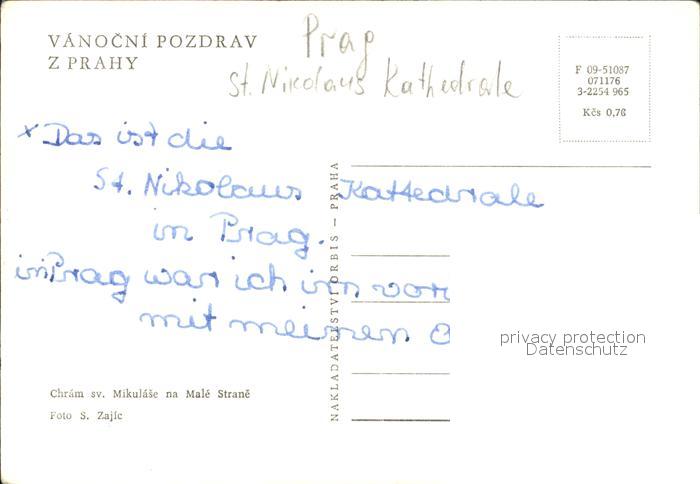 VÁNOČNÍ POZDRAV
Z PRAHY
Prag
St. Nikolaus Kathedrale
F 09-51087
071176
3-2254 965
Kčs 0,70
x Das ist die
St. Nikolaus Kattedrale
in Prag.
in Prag war ich im vor
mit meinen
NAKLADATELSTVÍ ORBIS – PRAHA
privacy protection
Datenschutz
Chrám sv. Mikuláše na Malé Straně
Foto S. Zajíc